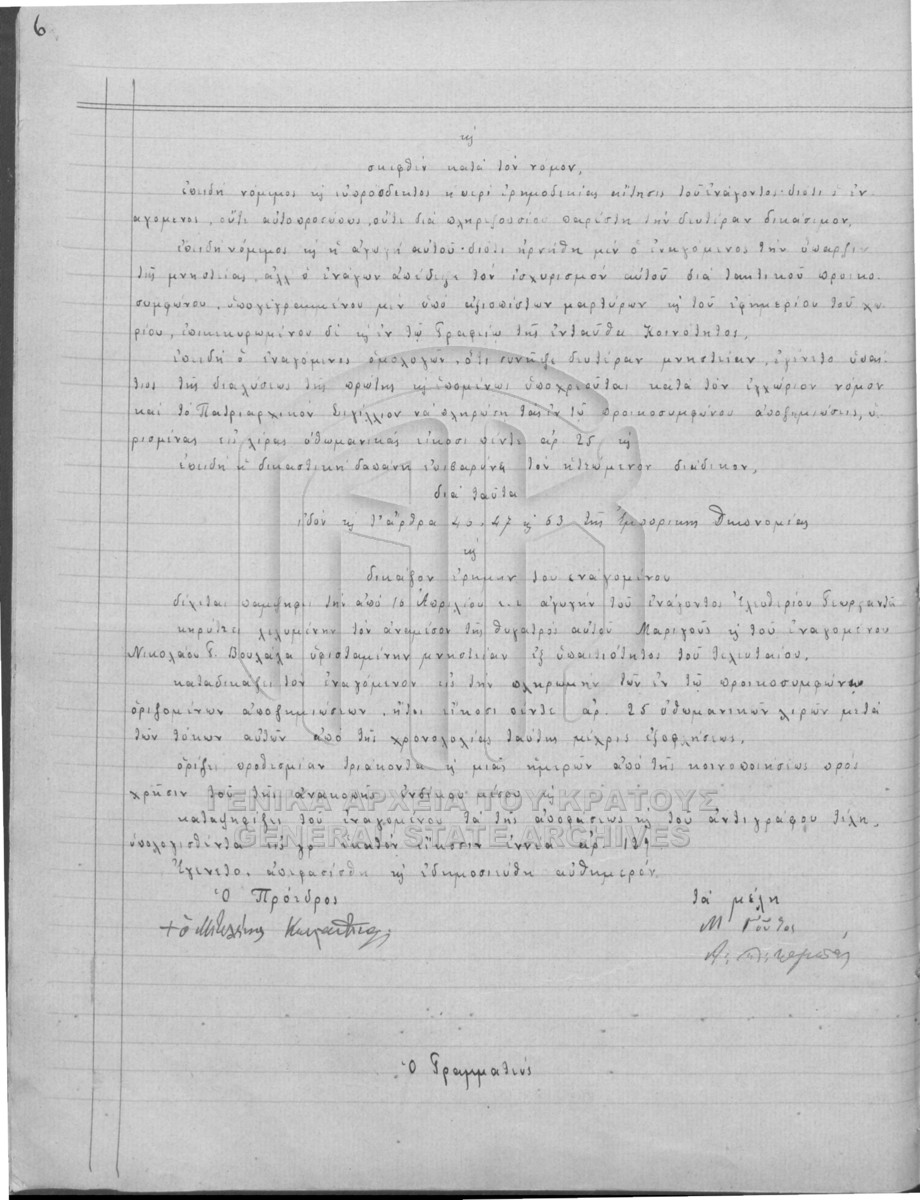 6
κ
σκεφθὲν κατὰ τὸν νόμον,
Ἐπειδὴ νόμιμος κ εὐπρόσδεκτος ἡ περὶ ἐρημοδικίας αἴτησις τοῦ ἐνάγοντος· διότι ὁ ἐν
αγόμενος, οὔτε αὐτοπροσώπως, οὔτε διὰ πληρεξουσίου παρέστη τὴν δευτέραν δικάσιμον,
Ἐπειδὴ νόμιμος κ ἡ ἀγωγὴ αὐτοῦ· διότι ἠρνήθη μὲν ὁ ἐναγόμενος τὴν ὕπαρξιν
τῆς μνηστείας, ἀλλ ὁ ἐνάγων ἀπέδειξε τὸν ἰσχυρισμὸν αὐτοῦ διὰ τακτικοῦ προικο
συμφώνου, ὑπογεγραμμένου μὲν ὑπὸ ἀξιοπίστων μαρτύρων κ τοῦ ἐφημερίου τοῦ χω
ρίου, ἐπικεκυρωμένου δὲ κ ἐν τῷ Γραφείῳ τῆς ἐνταῦθα Κοινότητος,
Ἐπειδὴ ὁ ἐναγόμενος ὁμολογῶν, ὅτι συνῆψε δευτέραν μνηστείαν, ἐγένετο ὑπαί
τιος τῆς διαλύσεως τῆς πρώτης κ ἑπομένως ὑποχρεοῦται κατὰ τὸν ἐγχώριον νόμον
καὶ τὸ Πατριαρχικὸν Σιγίλλιον νὰ πληρώσῃ τὰς ἐν τῷ προικοσυμφώνῳ ἀποζημιώσεις, ὡ
ρισμένας εἰς λίρας ὀθωμανικὰς εἴκοσι πέντε ἀρ. 25 κ
Ἐπειδὴ ἡ δικαστικὴ δαπάνη ἐπιβαρύνει τὸν ἡττώμενον διάδικον,
διὰ ταῦτα
ἰδὸν κ τ' ἄρθρα 47 κ 53 τῆς Ἐμπορικῆς Δικονομίας
κ
δικάζον ἐρήμην τοῦ ἐναγομένου
δέχεται παμψηφεὶ τὴν ἀπὸ 10 Ἀπριλίου ἐ.ἔ. ἀγωγὴν τοῦ ἐνάγοντος Ἐλευθερίου Γεωργαντᾶ
κηρύττει λελυμένην τὸν ἀνάμεσον τῆς θυγατρὸς αὐτοῦ Μαριγοῦς κ τοῦ ἐναγομένου
Νικολάου Γ. Βουλάλα ὑφισταμένην μνηστείαν ἐξ ὑπαιτιότητος τοῦ τελευταίου.
καταδικάζει τὸν ἐναγόμενον εἰς τὴν πληρωμὴν τῶν ἐν τῷ προικοσυμφώνῳ
ὁριζομένων ἀποζημιώσεων, ἤτοι εἴκοσι πέντε ἀρ. 25 ὀθωμανικῶν λιρῶν μετὰ
τῶν τόκων αὐτῶν ἀπὸ τῆς χρονολογίας ταύτης μέχρις ἐξοφλήσεως.
ὁρίζει προθεσμίαν τριάκοντα κ μιᾶς ἡμερῶν ἀπὸ τῆς κοινοποιήσεως πρὸς
χρῆσιν τοῦ τῆς ἀνακοπῆς ἐνδίκου μέσου κ
καταψηφίζει τοῦ ἐναγομένου τὰ τῆς ἀποφάσεως κ τοῦ ἀντιγράφου τέλη,
ὑπολογισθέντα εἰς γρ. ἑκατὸν εἴκοσιν ἐννέα ἀρ. 129.
Ἐγένετο, ἀπεφασίσθη κ ἐδημοσιεύθη αὐθημερόν.
Ὁ Πρόεδρος
τὰ μέλη
Μ Γοῦτος
Ὁ Γραμματεύς
ΓΕΝΙΚΑ ΑΡΧΕΙΑ ΤΟΥ ΚΡΑΤΟΥΣ
GENERAL STATE ARCHIVES